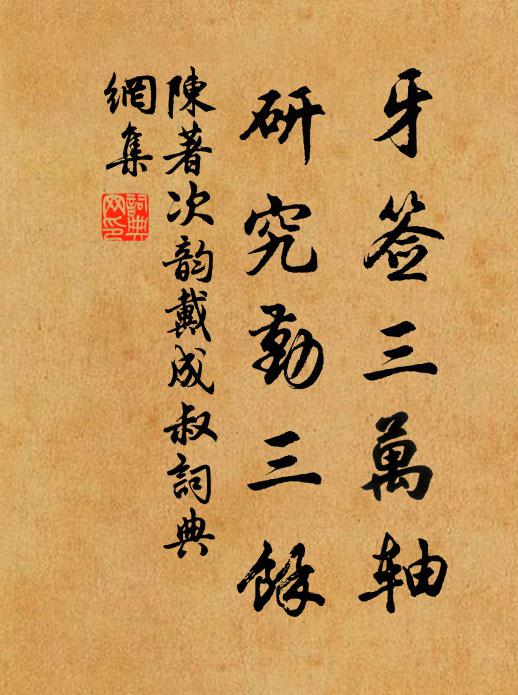 牙签三萬軸
研究勤三餘
陳著次韵戴成叔詞典
網集
詞典网印